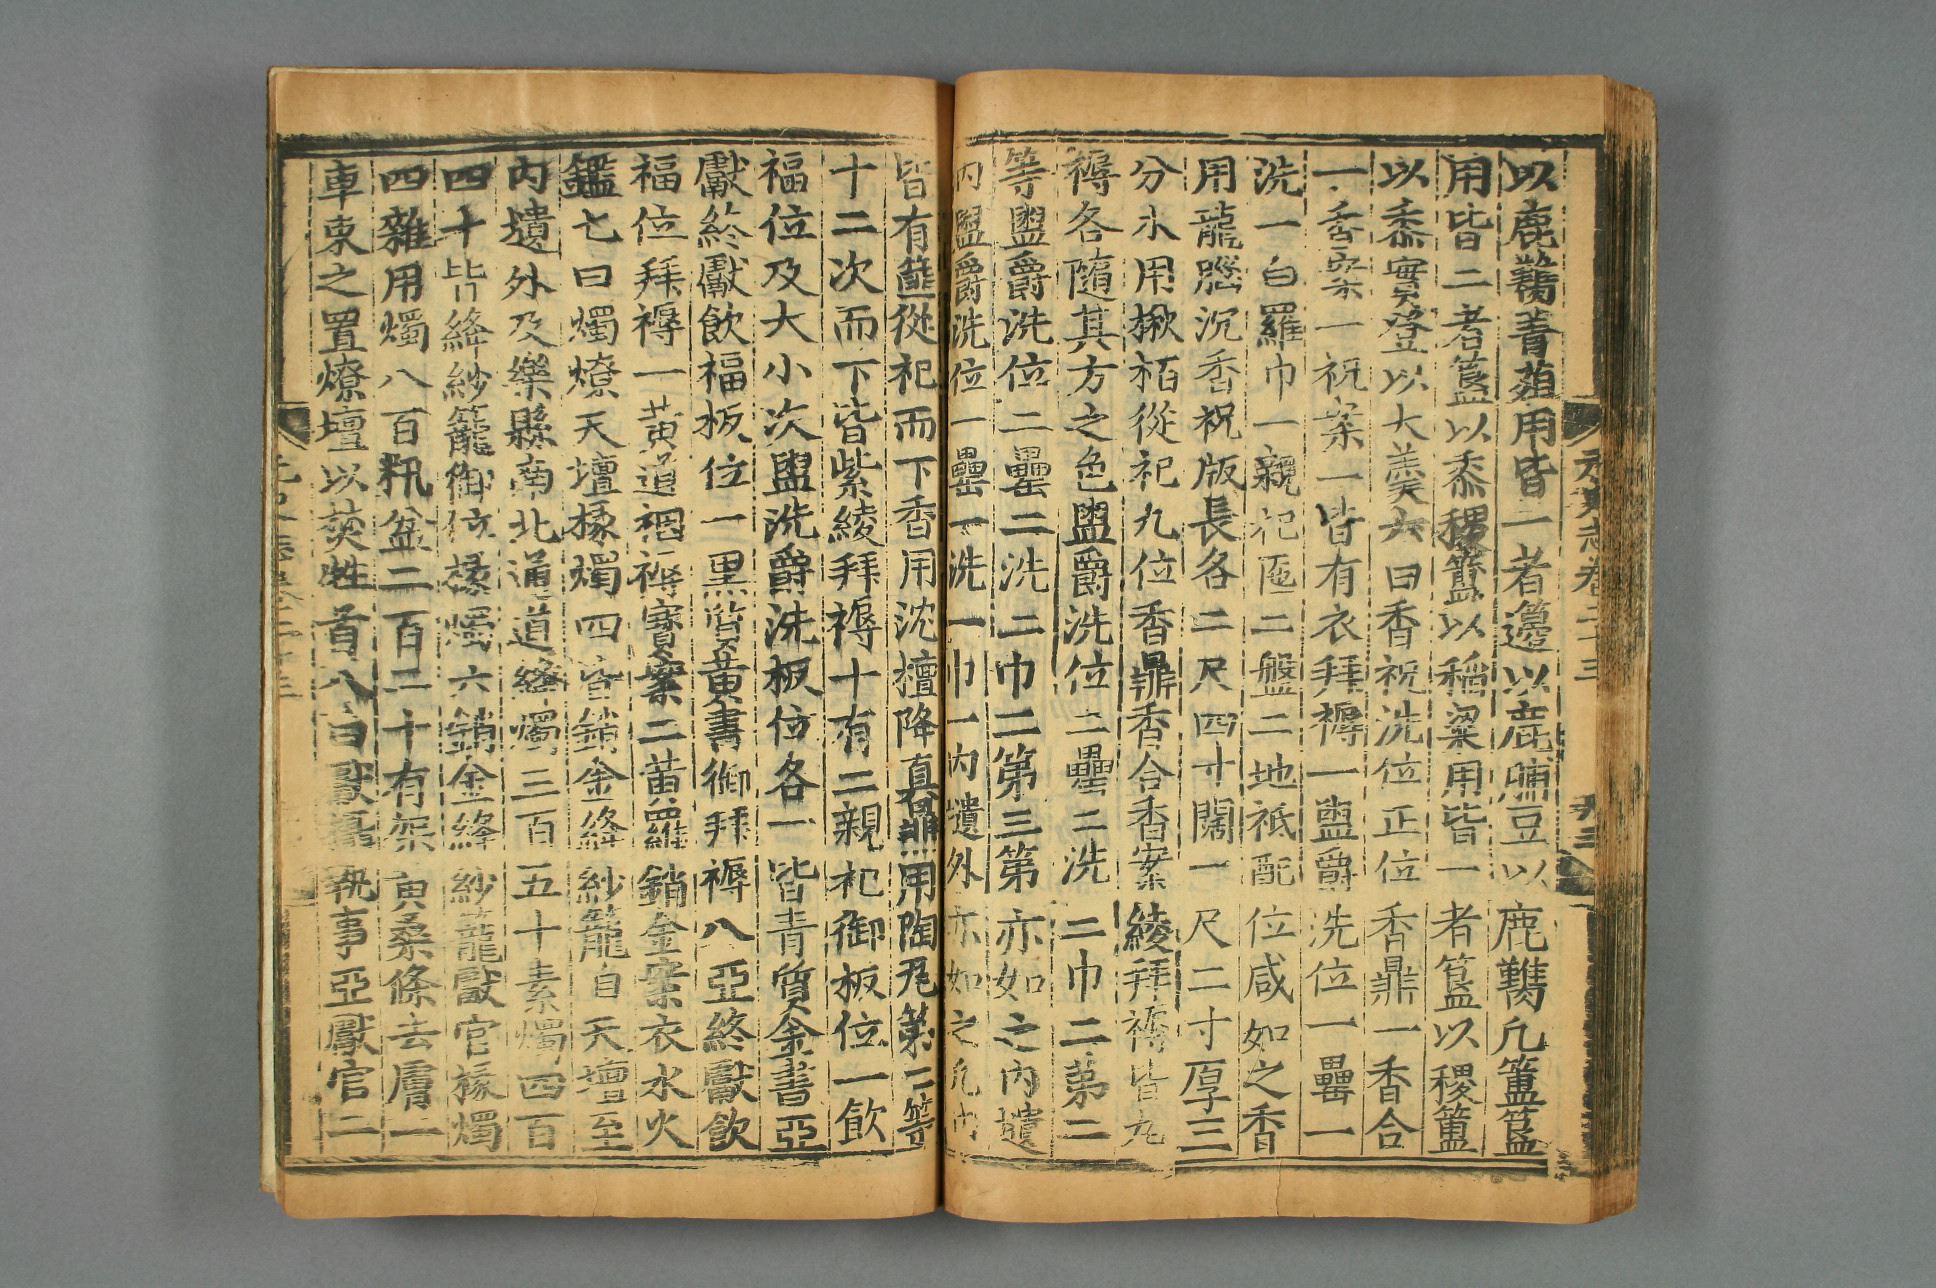 以鹿臡菁葅用皆一者籩以鹿脯豆以鹿臡凡簠簋
用皆二者簋以黍稷簠以稻粱用皆一者簋以稷簠
以黍實登以大羹六曰香祝洗位正位香鼎一香合
一香案一祝案一皆有衣拜褥一盥爵洗位一罍一
洗一白羅巾一親祀匜二盤二地祇配位咸如之香
用龍腦沉香祝版長各二尺四寸闊一尺二寸厚三
分木用楸栢從祀九位香鼎香合香案綾拜褥皆九
褥各隨其方之色盥爵洗位二罍二洗二巾二第二
等盥爵洗位二罍二洗二巾二第三第亦如之內壝
內盥爵洗位一罍一洗一巾一內壝外亦如之凡內
皆有篚從祀而下香用沈檀降真鼎用陶瓦第二等
十二次而下皆紫綾拜褥十有二親祀御板位一飲
福位及大小次盥洗爵洗板位各一皆青質金書亞
獻終獻飲福板位一黑質黃書御拜褥八亞終獻飲
福位拜褥一黃道裀褥寶案二黃羅銷金案衣水火
鑑七曰燭燎天壇椽燭四皆銷金絳紗籠自天壇至
內壝外及樂縣南北通道絳燭三百五十素燭四百
四十皆絳紗籠御位椽燭六銷金絳紗籠獻官椽燭
四雜用燭八百籸盆二百二十有架黃桑條去膚一
車束之置燎壇以焚牲首八曰獻攝執事亞獻官二